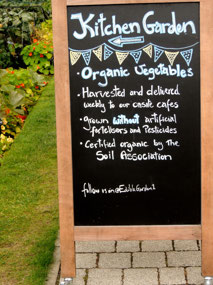 Kitchen Garden
• Organic Vegetables
• Harvested and delivered
weekly to our castle cafes
• grown without artificial
fertelisers and Pesticides
• Certified organic by the
Soil Association
follow us on @EdibleGarden1